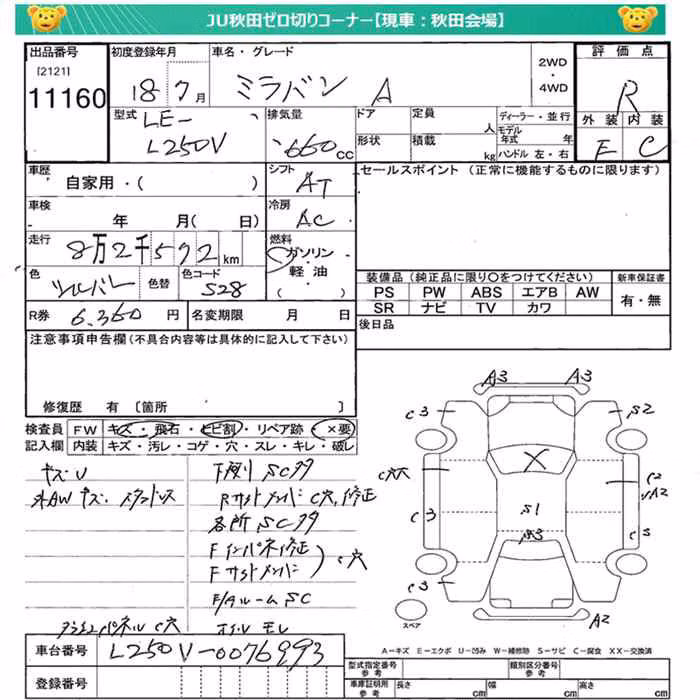 JU秋田ゼロ切りコーナー【現車:秋田会場】
出品番号 初度登録年月 車名・グレード 2WD ・ 4WD 評価点
[2121]
11160 18 7月 ミラバン A R
型式 LE- L250V 排気量 660cc ドア 定員 人 ディーラー・並行
形状 積載 kg モデル年式 年 ハンドル 左・右 外装 内装
E C
車歴 自家用・( ) シフト AT セールスポイント (正常に機能するものに限ります)
車検 年 月( 日) 冷房 AC
走行 8万2千572km 燃料 ガソリン 軽油 ・( )
色 シルバー 色替 色コード S28 装備品(純正品に限り〇をつけてください) 新車保証書
PS PW ABS エアB AW 有・無
SR ナビ TV カワ
R券 6,360円 名変期限 月 日 後日品
注意事項申告欄(不具合内容等は具体的に記入して下さい)
修復歴 有 〔箇所 〕
検査員 FW キズ・飛石・ヒビ割・リペア跡 ×要
記入欄 内装 キズ・汚レ・コゲ・穴・スレ・キレ・破レ
キズU 下廻り SCサタ
外AW キズ. スタッドレス Rサイドメンバ C穴,修正
各所 SCサタ
Fインパネ修正
Fサイドメンバ C穴
F/Aルーム SC
C穴 オイルモレ
車台番号 L250V-0076993
登録番号
A3 A3
C3 S2
C穴 X C2
A2
C3 S1 S3 CS
C3
A2
スペア
A-キズ E-エクボ U-凹み W-補修跡 S-サビ C-腐食 XX-交換済
型式指定番号 参考 類別区分番号 参考
車庫証明用 参考 長さ cm 幅 cm 高さ cm